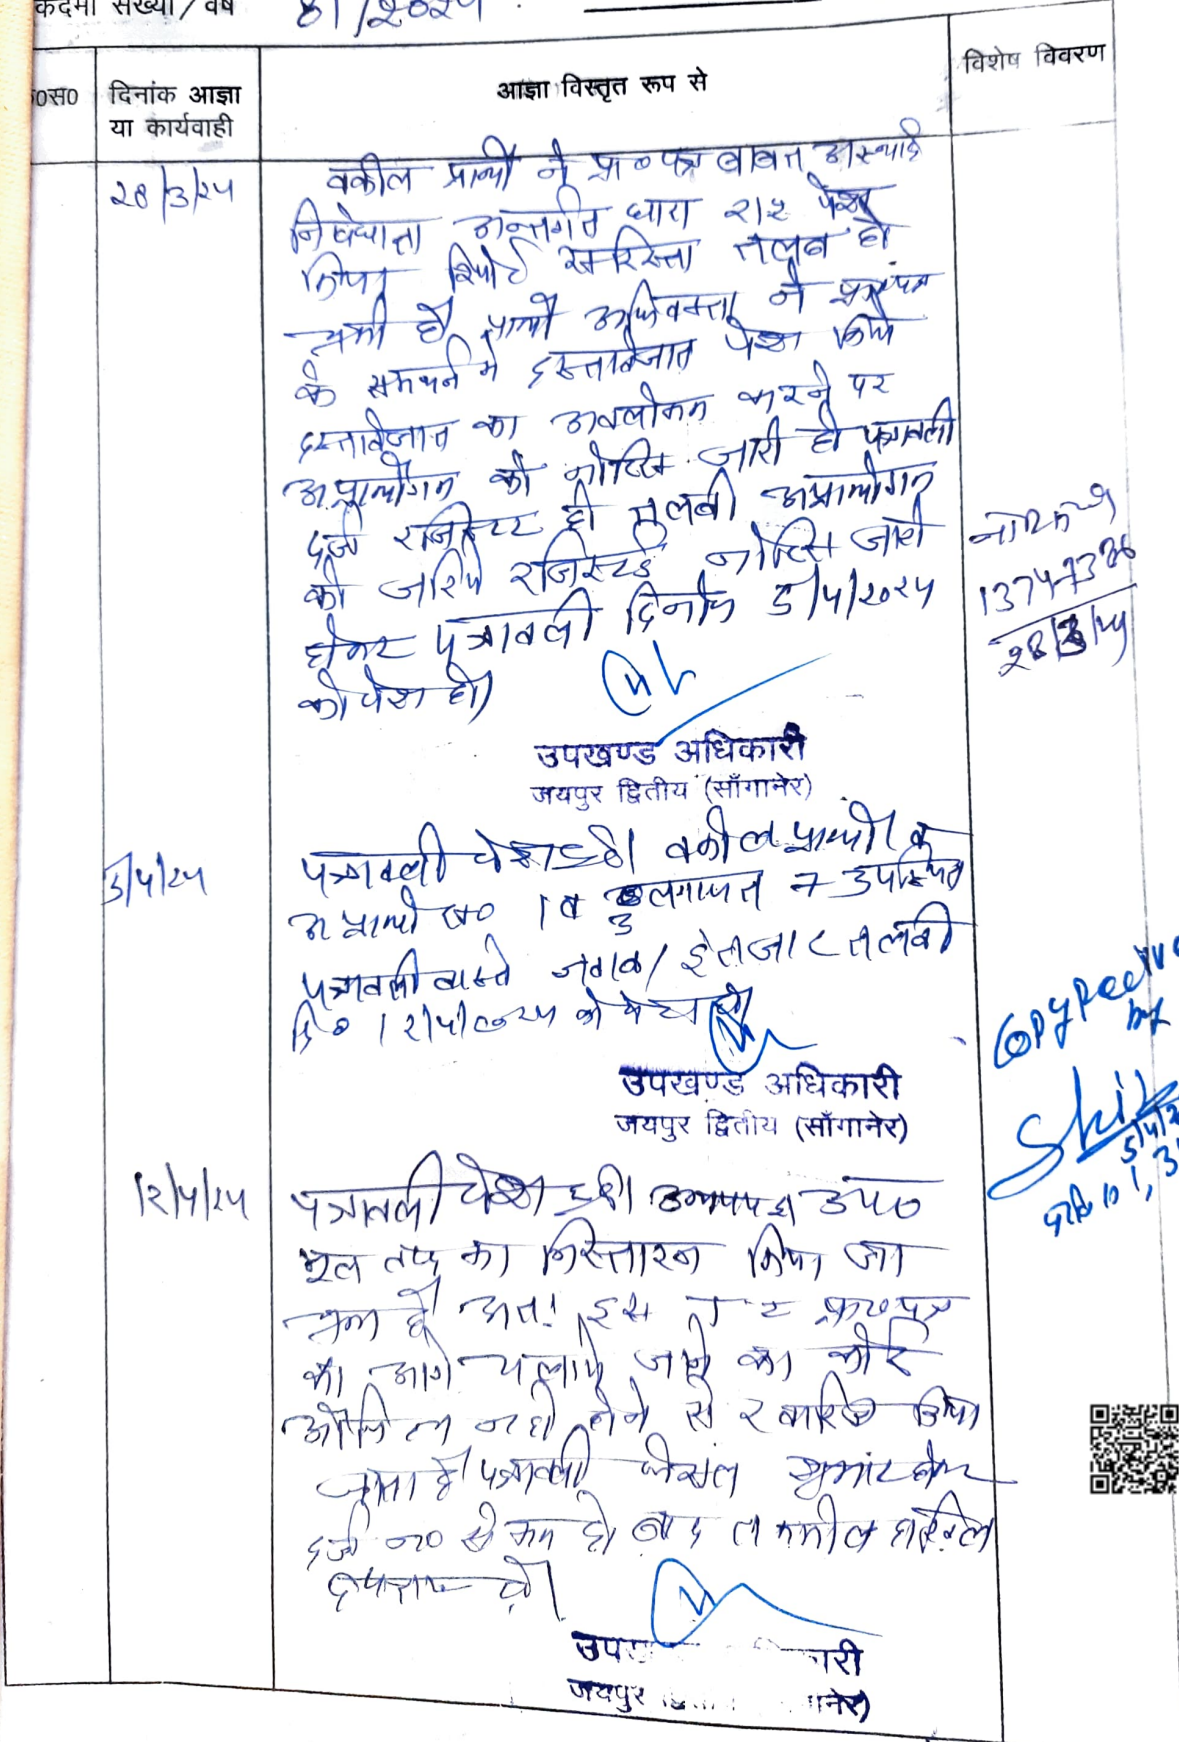 कदमा संख्या / वर्ष 81/2024
०स० दिनांक आज्ञा या कार्यवाही
आज्ञा विस्तृत रूप से
विशेष विवरण
28/3/24
वकील प्रार्थी ने प्रा०पत्र बाबत अस्थाई
निषेधाज्ञा अन्तर्गत धारा 212 पेश
किया रिपोर्ट सरिस्ता तलब हो
चुकी है प्रार्थी अधिवक्ता ने प्रा०पत्र
के समर्थन में दस्तावेजात पेश किये
दस्तावेजात का अवलोकन करने पर
अप्रार्थीगण को नोटिस जारी हो पत्रावली
दर्ज रजिस्टर हो तलबी अप्रार्थीगण
को जरिये रजिस्टर्ड नोटिस जारी
होकर पत्रावली दिनांक 5/4/2024
को पेश हो।
28/3/24
उपखण्ड अधिकारी
जयपुर द्वितीय (साँगानेर)
5/4/24
पत्रावली पेश हुई। वकील प्रार्थी व
अप्रार्थी सं० 1 व 3 लगायत 7 उपस्थित
पत्रावली वास्ते जवाब/इंतजार तलबी
दि० 12/4/2024 को पेश हो
उपखण्ड अधिकारी
जयपुर द्वितीय (साँगानेर)
Copy Received
by
5/4/2
1, 3
12/4/24
पत्रावली पेश हुई। उभयपक्ष उप०
मूल वाद का निस्तारण किया जा
चुका है अतः इस प्रा०पत्र
को आगे चलाये जाने का कोई
औचित्य नहीं होने से खारिज किया
जाता है पत्रावली फैसल शुमार होकर
दर्ज न० से कम हो बाद तकमील दाखिल
दफ्तर हो।
उपख ारी
जयपुर द्वि ानेर)